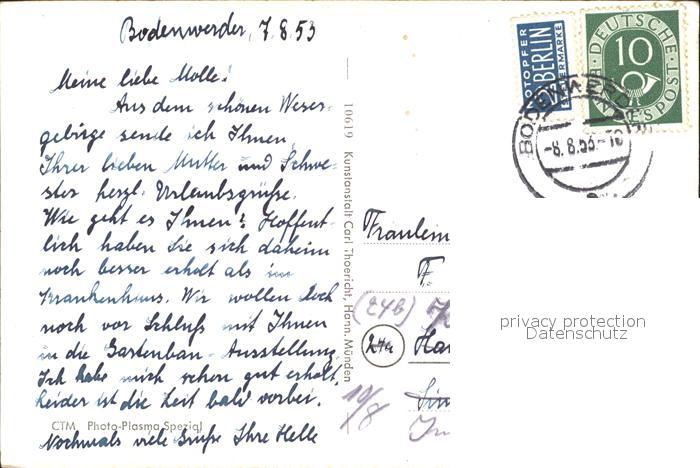 Bodenwerder, 7.8.53
Meine liebe Molle!
Aus dem schönen Weser-
gebirge sende ich Ihnen,
Ihrer lieben Mutter und Schwe-
ster herzl. Urlaubsgrüße.
Wie geht es Ihnen? Hoffent-
lich haben Sie sich daheim
noch besser erholt als im
Krankenhaus. Wir wollen doch
noch vor Schluß mit Ihnen
in die Gartenbau-Ausstellung.
Ich habe mich schon gut erholt,
leider ist die Zeit bald vorbei.
CTM Photo-Plasma Spezial
Nochmals viele Grüße Ihre Helle
10619 Kunstanstalt Carl Thoericht, Hann. Münden
NOTOPFER
2 BERLIN
STEUERMARKE
DEUTSCHE
10
BUNDESPOST
BODENWERDER
-8.8.53.-18
Fräulein
F.
(24b)
24a
Ha
10/8
privacy protection
Datenschutz